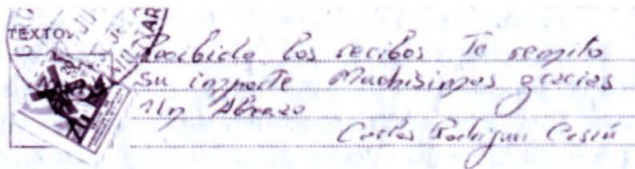 TEXTO:
Recibido los recibos Te remito
su importe Muchisimas gracias
Un Abrazo
Carlos Rodriguez